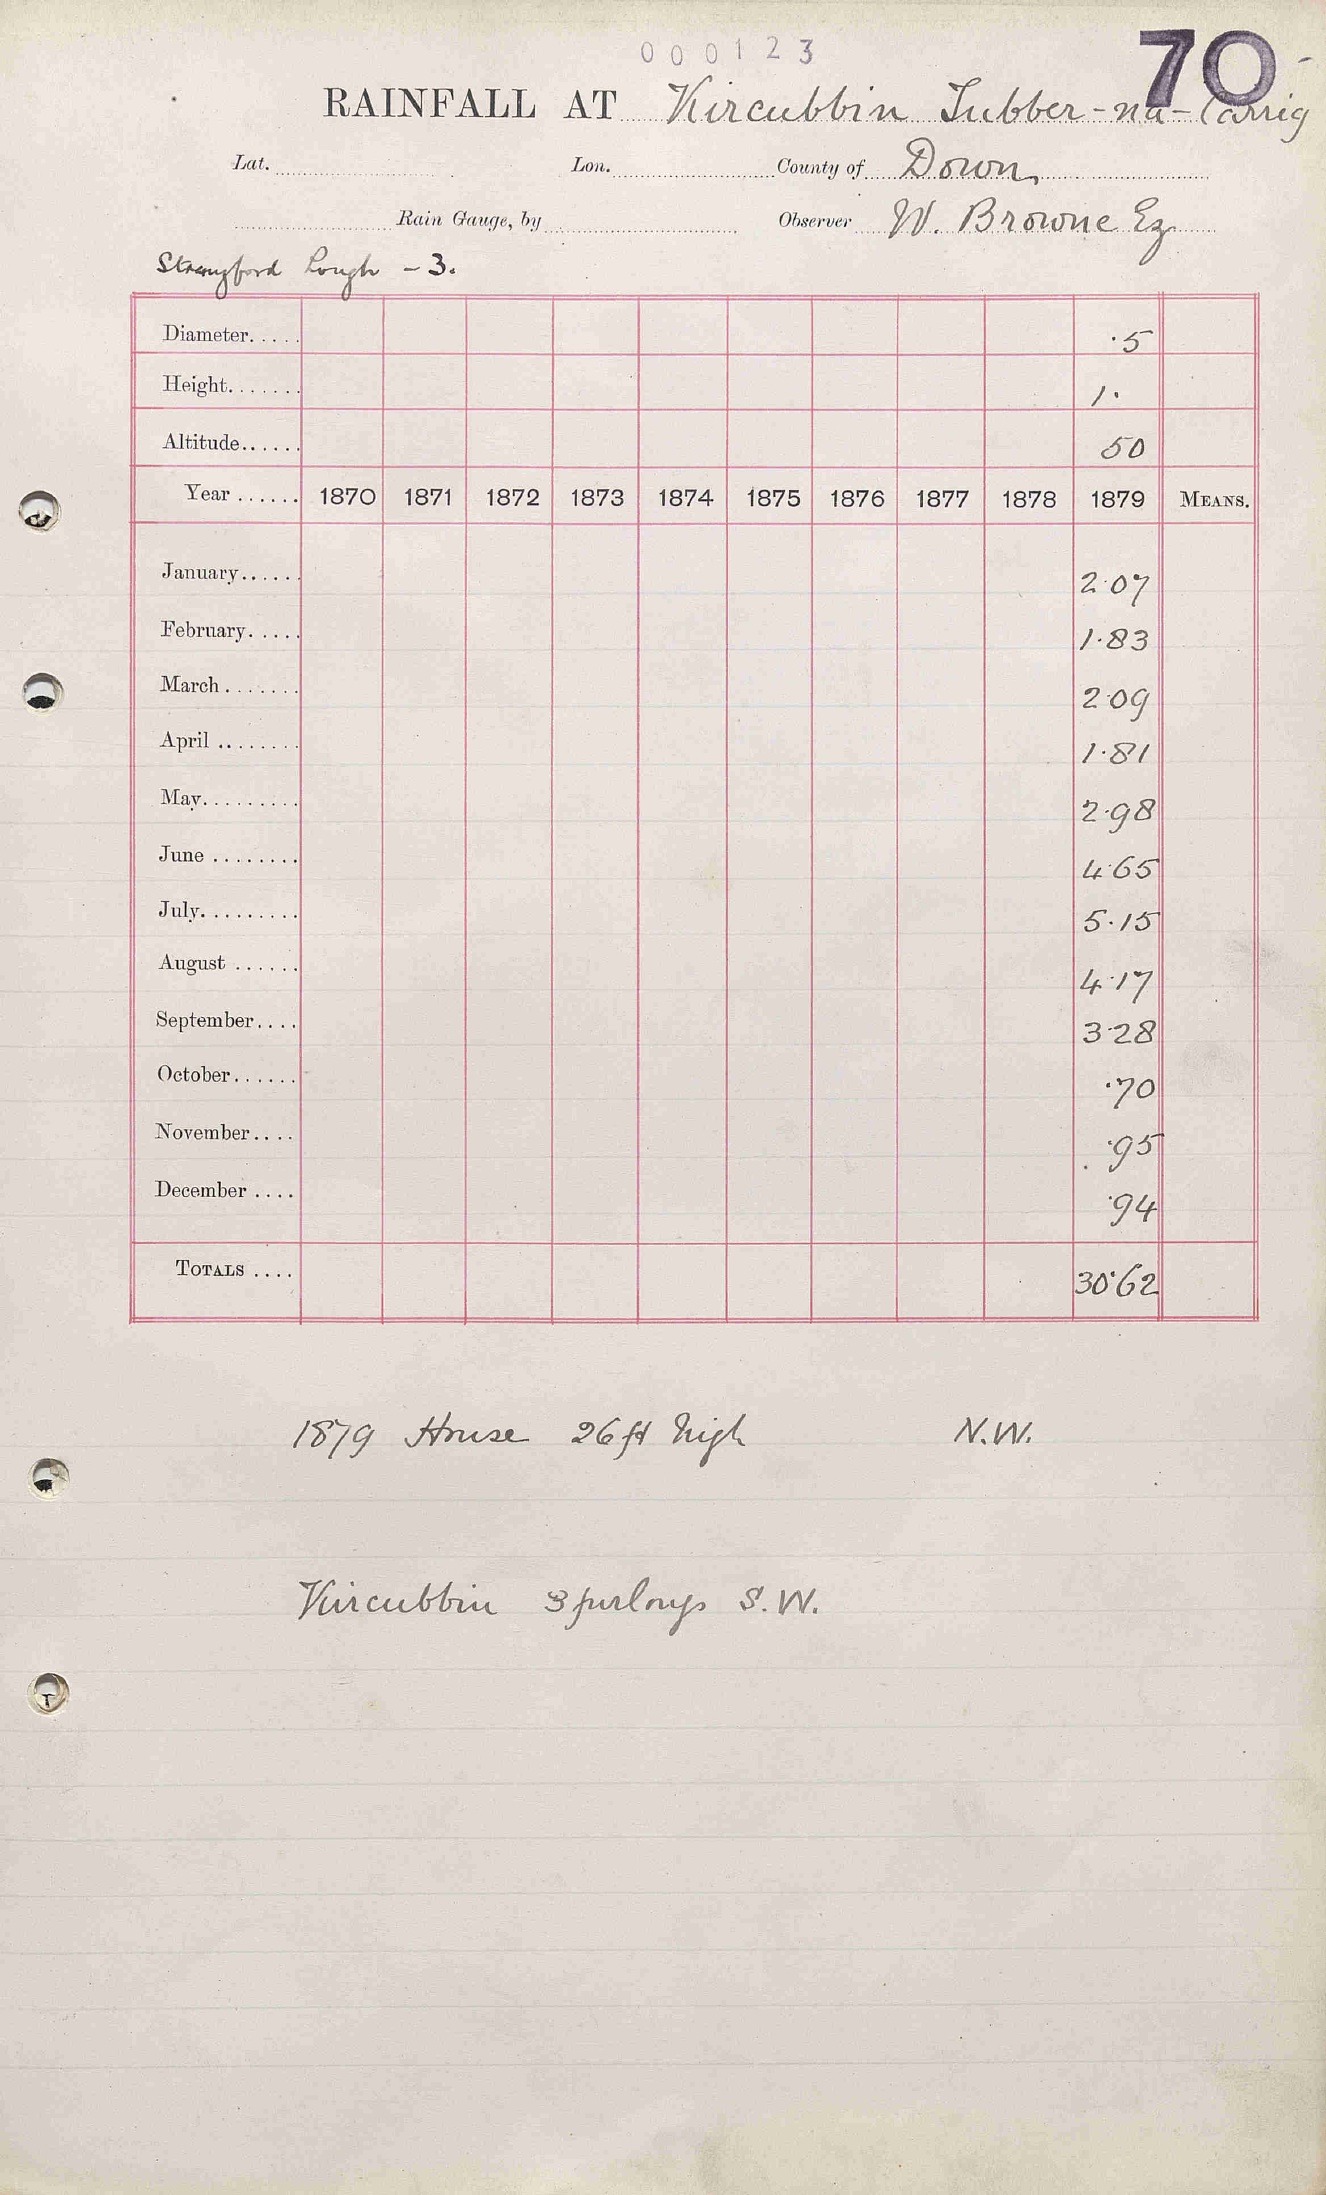 000123
70
RAINFALL AT Kircubbin Tubber-na-Carrig
Lat. Lon. County of Down
Rain Gauge, by Observer W. Browne Ez
Strangford Lough - 3.
Diameter..... ·5
Height....... 1·
Altitude...... 50
Year ...... 1870 1871 1872 1873 1874 1875 1876 1877 1878 1879 MEANS.
January...... 2·07
February..... 1·83
March ....... 2·09
April ........ 1·81
May......... 2·98
June ........ 4·65
July......... 5·15
August ...... 4·17
September.... 3·28
October...... ·70
November.... ·95
December .... ·94
TOTALS .... 30·62
1879 House 26 ft high N.W.
Kircubbin 3 furlongs S.W.